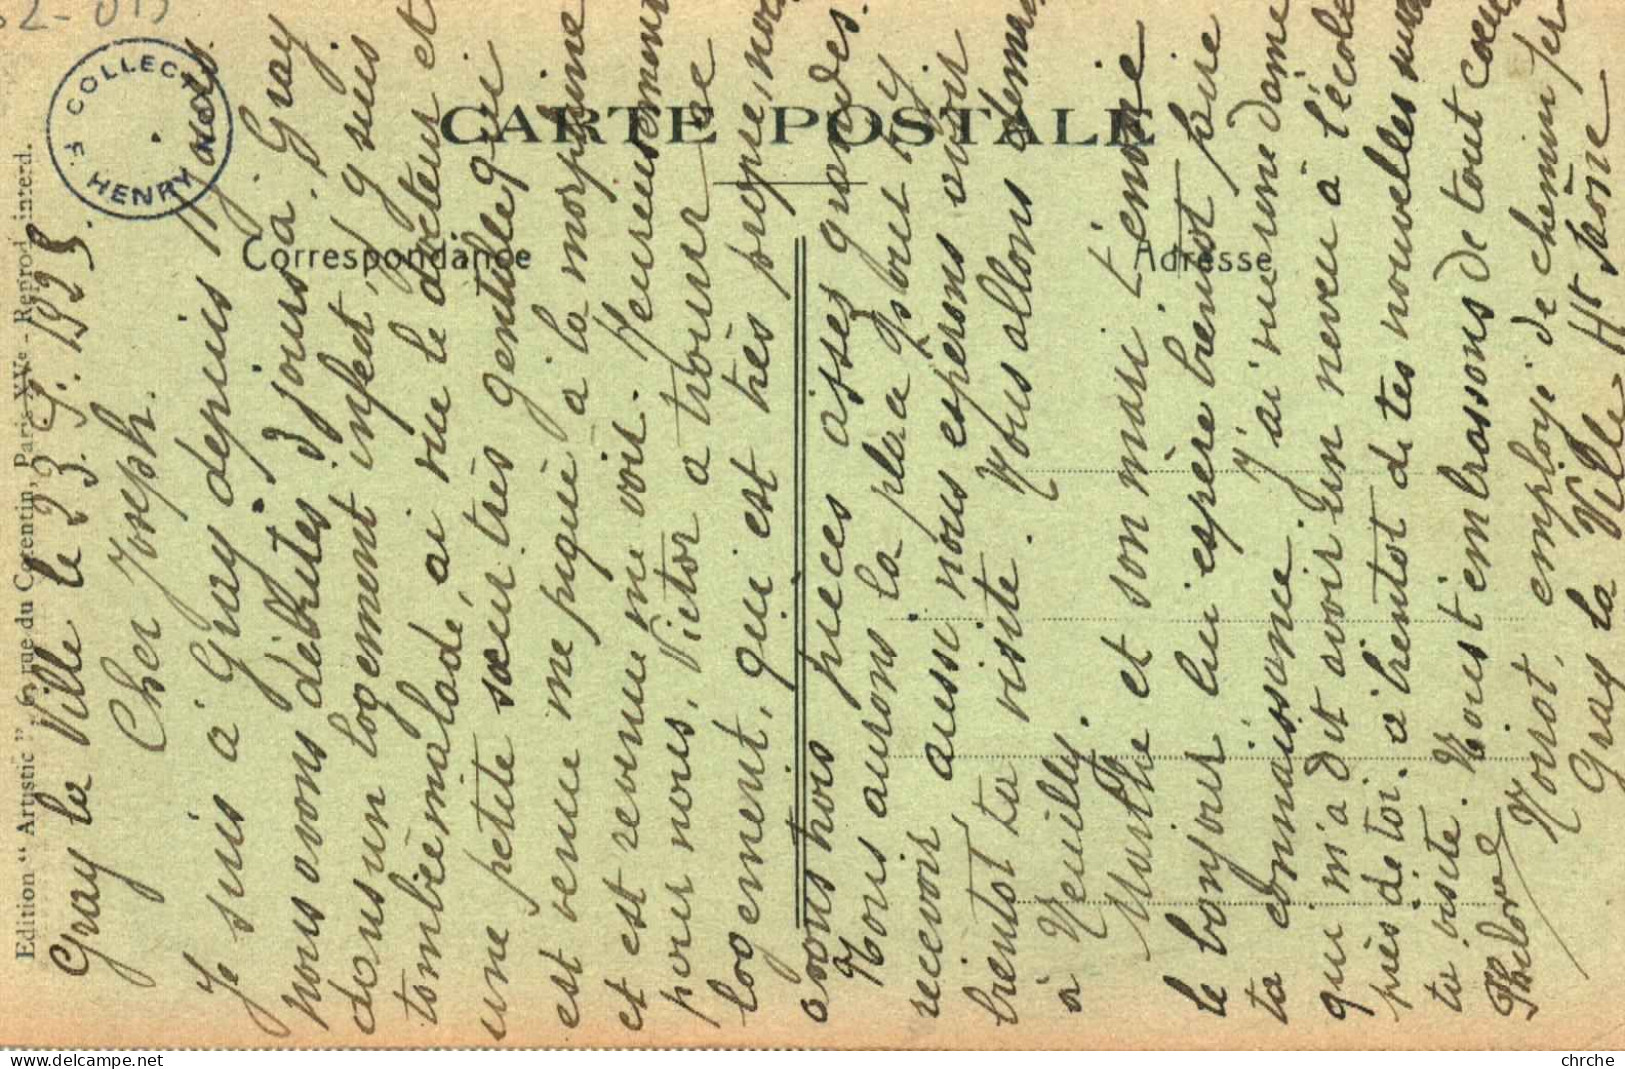 Gray la Ville le 23. 9. 1925.
Cher Joseph.
Je suis à Gray depuis 1 mois.
nous avons débutés 3 jours à Gray
dans un logement infect, j'y suis
tombée malade, ai vue le docteur et
une petite sœur très gentille qui
est venue me piquer à la morphine
et est revenue me voir. Heureusement
pour nous, Victor a trouvé ce
logement, qui est très propre, nous
avons trois pièces assez grandes.
Nous aurons la place pour t'y
recevoir aussi nous espérons avoir
bientôt ta visite. Nous allons déména
à Neuilly.
Marthe et son mari t'envoie
le bonjour lui espère bientôt faire
ta connaissance. J'ai vue une dame
qui m'a dit avoir un neveu à l'école
près de toi. à bientôt de tes nouvelles
ta visite. Nous t'embrassons de tout cœur
Philove
Noirot, employé de chemin fer
Gray la Ville Hte Saône
CARTE POSTALE
Correspondance
Adresse
Edition "Artistic", 6, rue du Cotentin, Paris-XVe - Reprod. interd.
COLLECT
F. HENRY